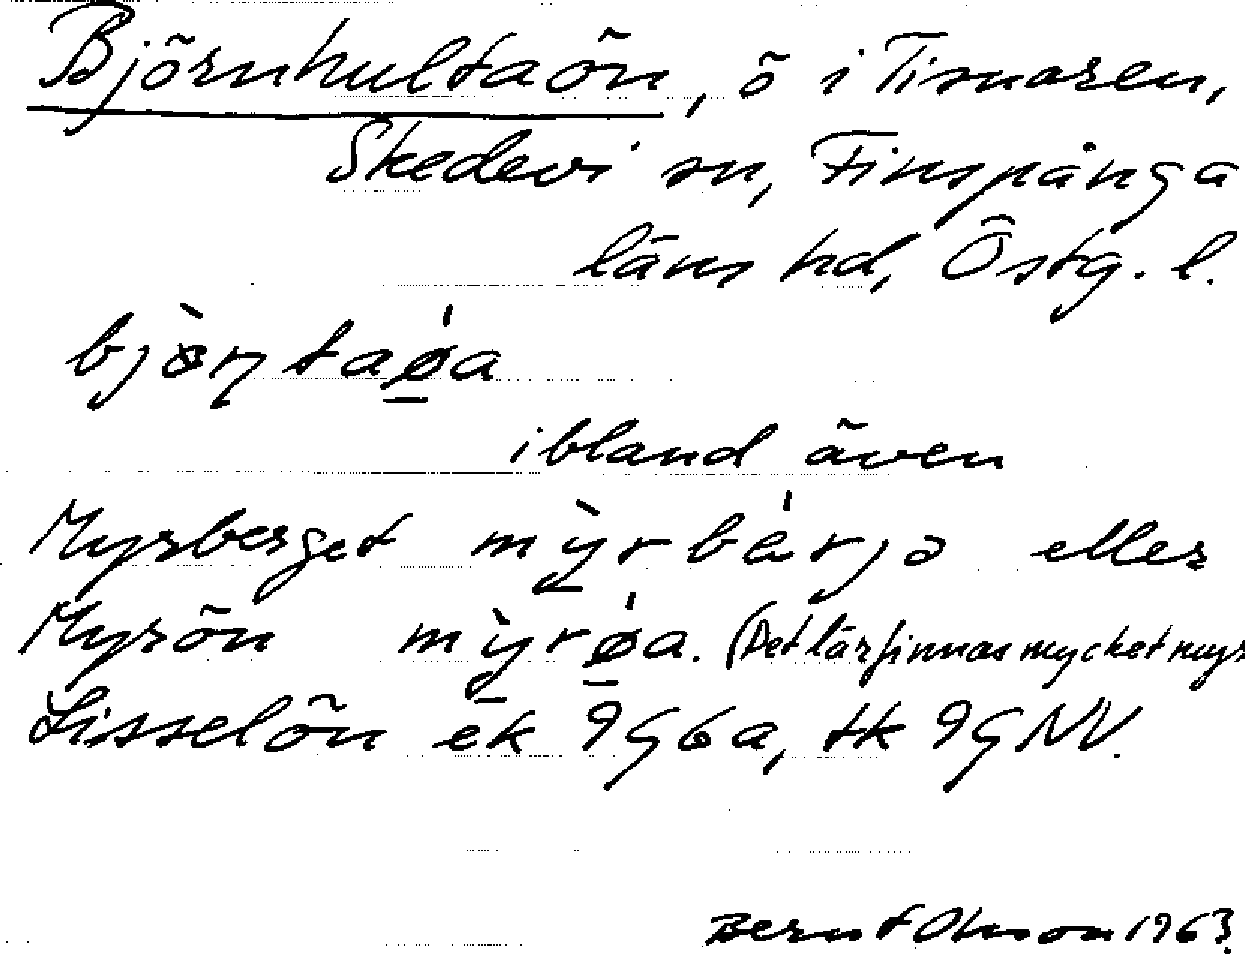 Björnhultaön, ö i Tisnaren,
Skedevi sn, Finspånga
läns hd, Östg. l.
bjö̀ṇtaǿa
ibland även
Myrsberget mỳrbérjə eller
Myrön mỳrǿa. (Det lär finnas mycket myr
Lisselön ek 9G6a, tk 9GNV.
Bernt Olsson 1963.